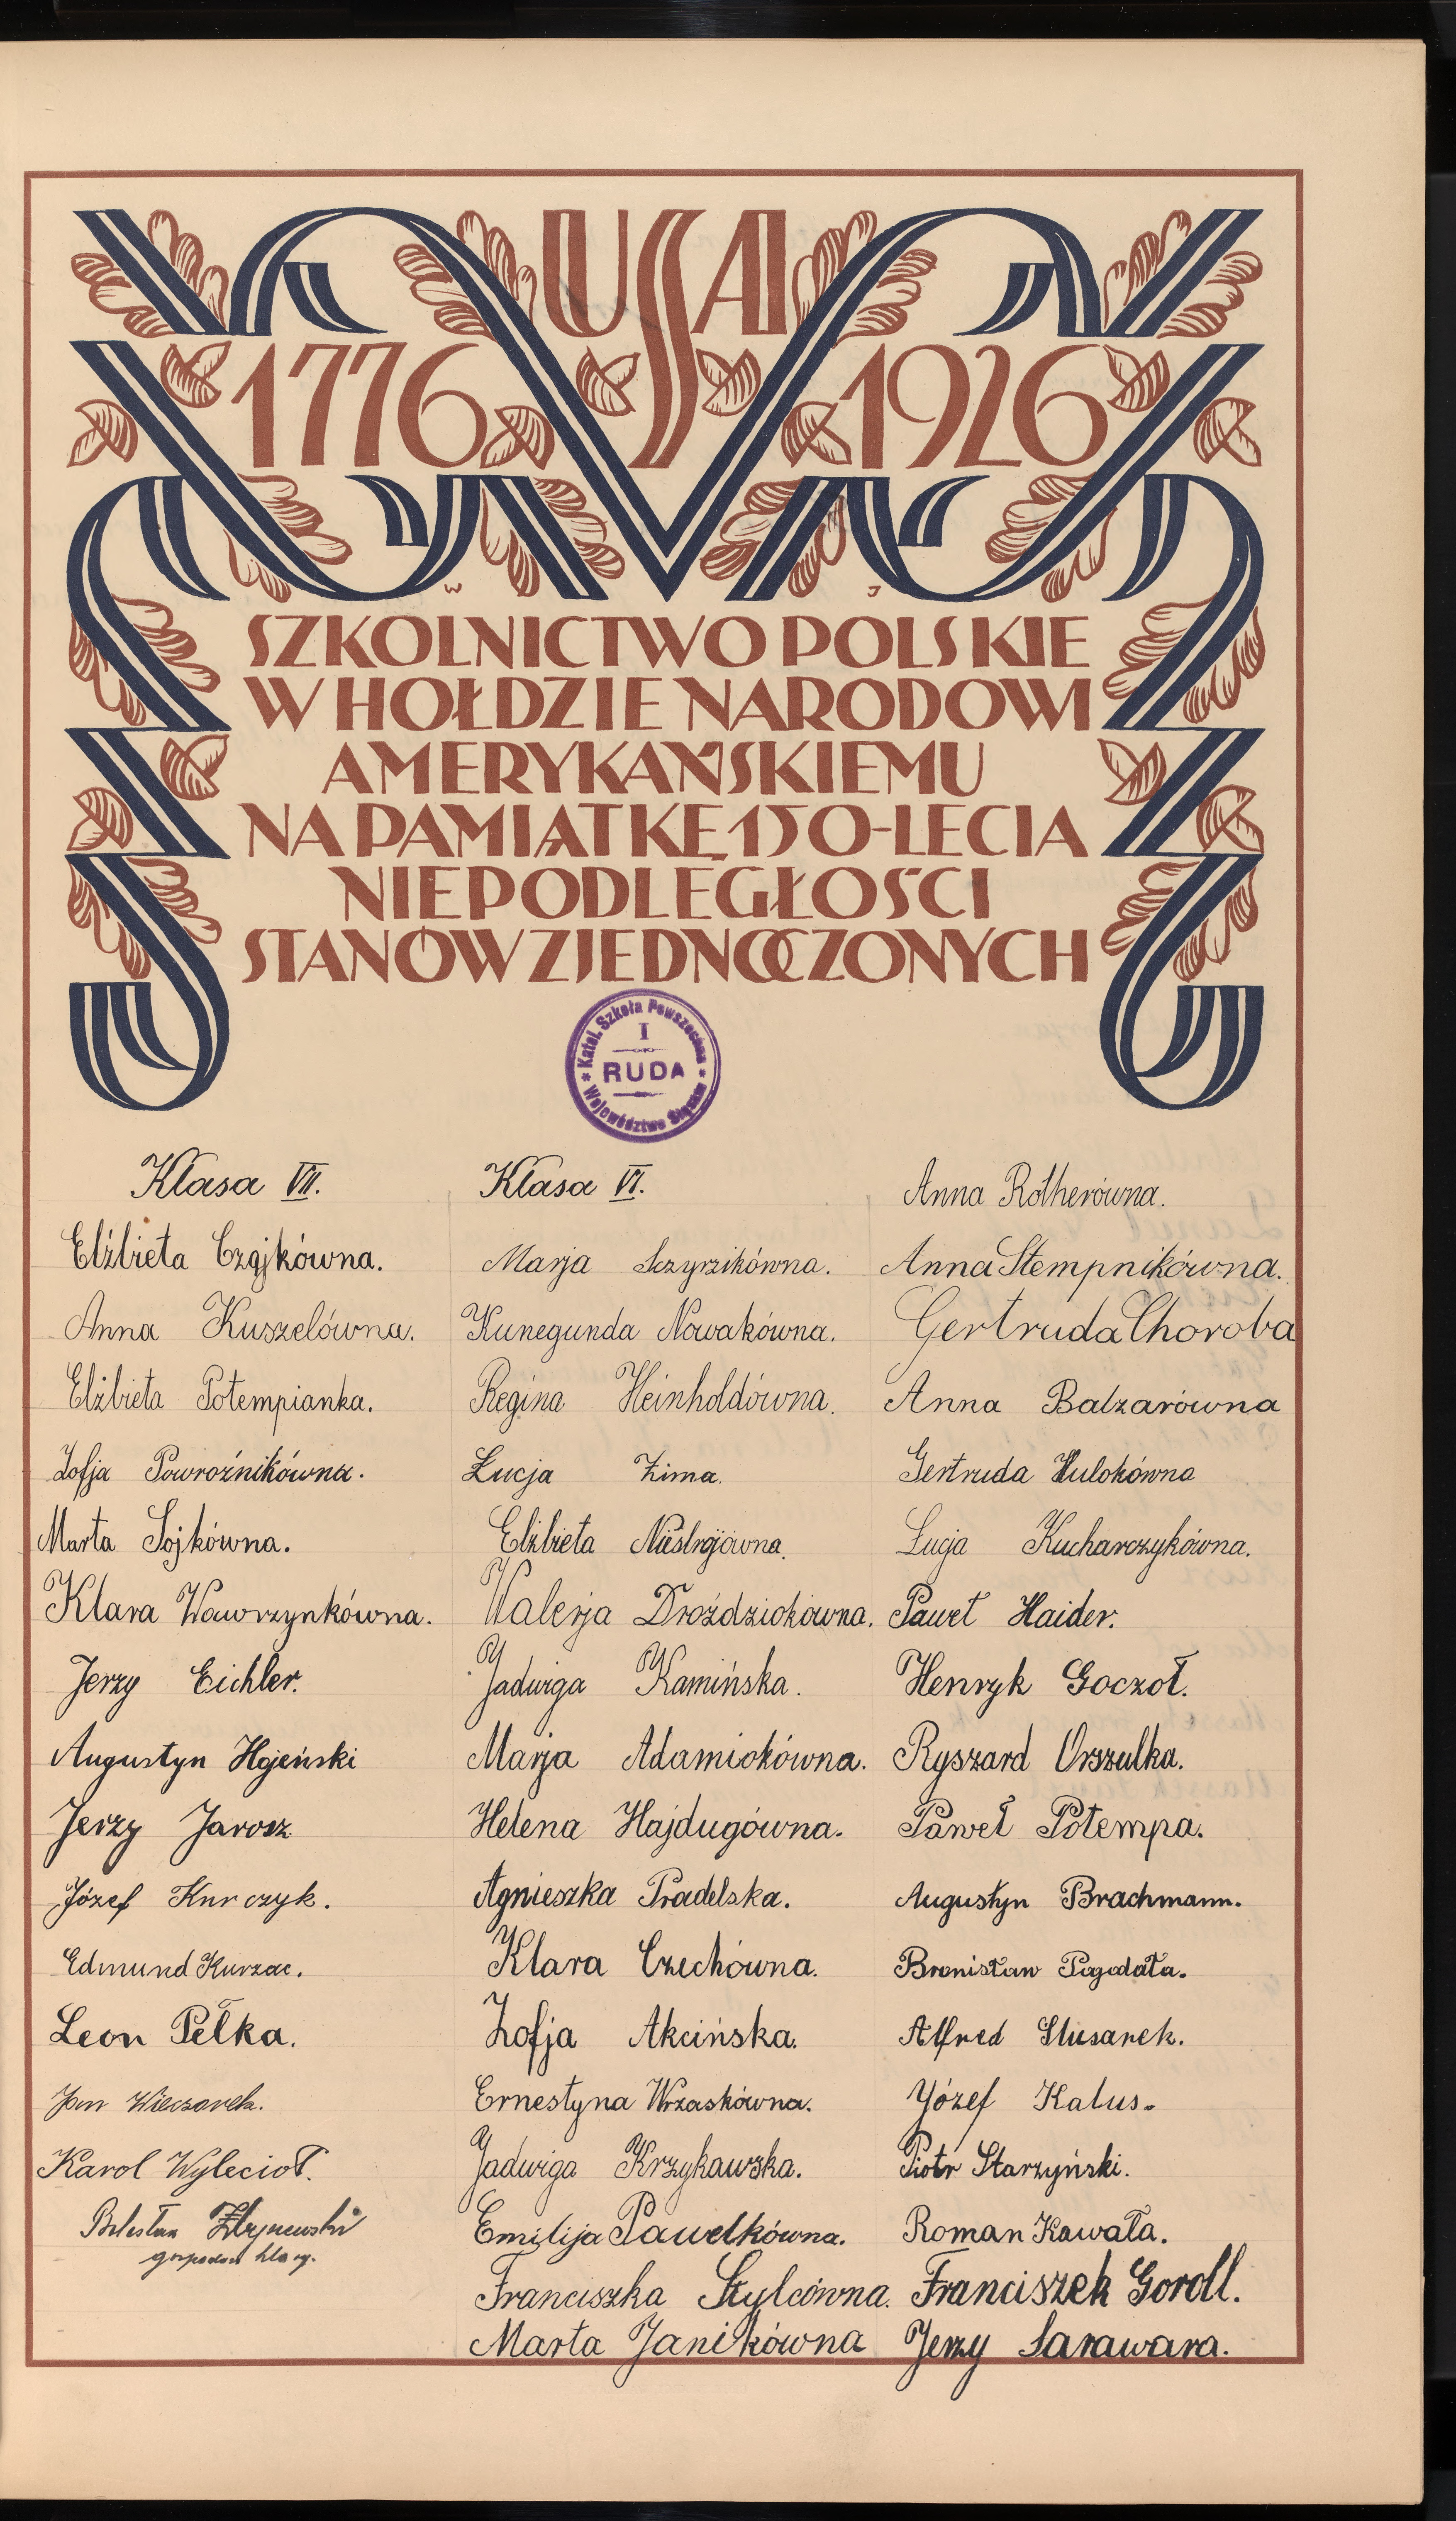 USA
1776 1926
W J
SZKOLNICTWO POLSKIE
W HOŁDZIE NARODOWI
AMERYKAŃSKIEMU
NA PAMIĄTKĘ 150-LECIA
NIEPODLEGŁOŚCI
STANÓW ZJEDNOCZONYCH
Katol. Szkoła Powszechna
I
RUDA
Województwo Śląskie
Klasa VII.
Elżbieta Czajkówna.
Anna Kuszelówna.
Elżbieta Potempianka.
Zofja Powroźnikówna.
Marta Sojkówna.
Klara Wawrzynkówna.
Jerzy Eichler.
Augustyn
Jerzy Jarosz
Józef Knrczyk.
Edmund Kurzac.
Leon Pełka.
Jan Wieczorek.
Karol Wylecioł.
Bolesław
gospodarz klasy.
Klasa VI.
Marja Sczyrzikówna.
Kunegunda Nowakówna.
Regina Heinholdówna.
Łucja Zima.
Elżbieta
Walerja Droździokówna.
Jadwiga Kamińska.
Marja Adamiokówna.
Helena Hajdugówna.
Agnieszka Pradelska.
Klara Czechówna.
Zofja Akcińska.
Ernestyna Wrzaskówna.
Jadwiga Krzykawska.
Emilija Pawelkówna.
Franciszka Szylcówna.
Marta Janikówna
Anna Rotherówna.
Anna Stempnikówna.
Gertruda Choroba
Anna Balzarówna
Gertruda Hulokówna
Łucja Kucharczykówna.
Paweł Haider.
Henryk Goczoł.
Ryszard Orszulka.
Paweł Potempa.
Augustyn Brachmann.
Bronisław Pogodała.
Alfred Slusarek.
Józef Kalus.
Piotr Starzyński.
Roman Kawała.
Franciszek Goroll.
Jerzy Sarawara.